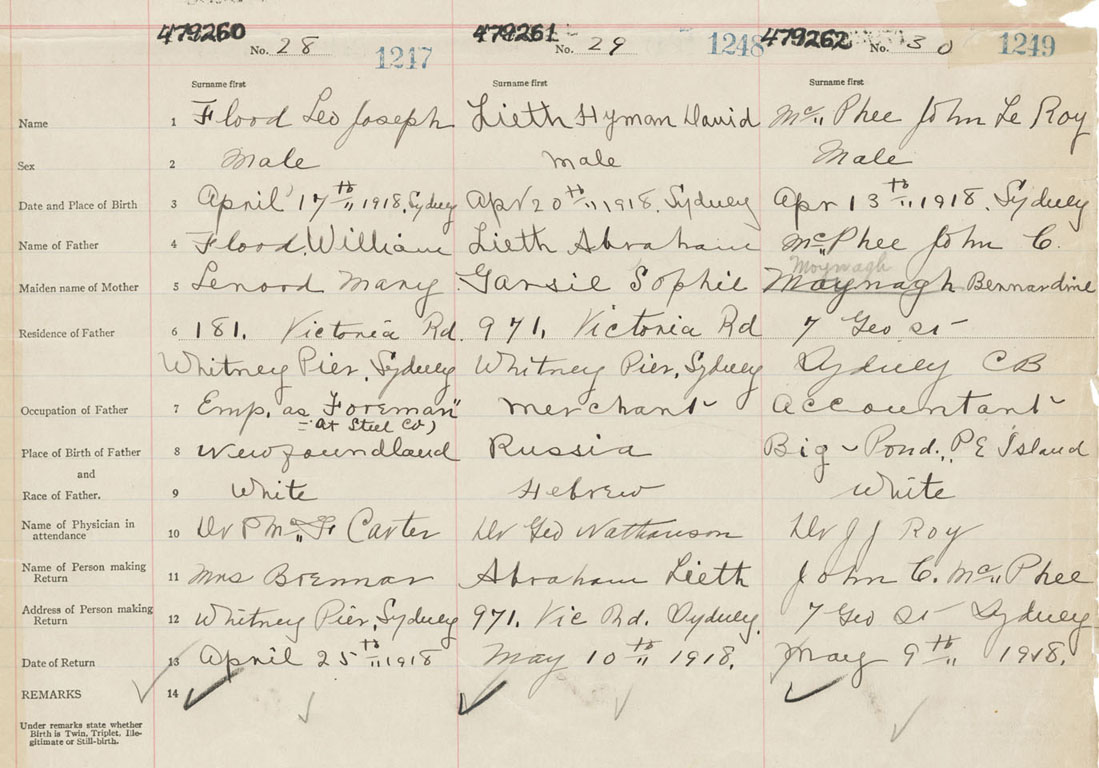 479260 No. 28 1217 479261 No. 29 1248 479262 No. 30 1249
Surname first Surname first Surname first
Name 1 Flood Leo Joseph Lieth Hyman David Mc Phee John Le Roy
Sex 2 Male male Male
Date and Place of Birth 3 April 17th 1918, Sydney Apr 20th 1918. Sydney Apr 13th 1918. Sydney
Name of Father 4 Flood, William Lieth Abraham McPhee John C.
Moynagh
Maiden name of Mother 5 Lenord Mary Garsie Sophie Maynagh Bennardine
Residence of Father 6 181, Victoria Rd. 971, Victoria Rd 7 Geo St
Whitney Pier, Sydney Whitney Pier, Sydney Sydney CB
Occupation of Father 7 Emp. as Foreman merchant accountant
at Steel Co)
Place of Birth of Father 8 Newfoundland Russia Big-Pond, P E Island
and
Race of Father. 9 White Hebrew White
Name of Physician in attendance 10 Dr Carter Dr Geo Nathanson Dr J J Roy
Name of Person making Return 11 Mrs Brennan Abraham Lieth John C. Mc Phee
Address of Person making Return 12 Whitney Pier, Sydney 971. Vic Rd. Sydney. 7 Geo St Sydney
Date of Return 13 April 25th 1918 May 10th 1918. May 9th 1918.
REMARKS 14
Under remarks state whether
Birth is Twin, Triplet, Ille-
gitimate or Still-birth.